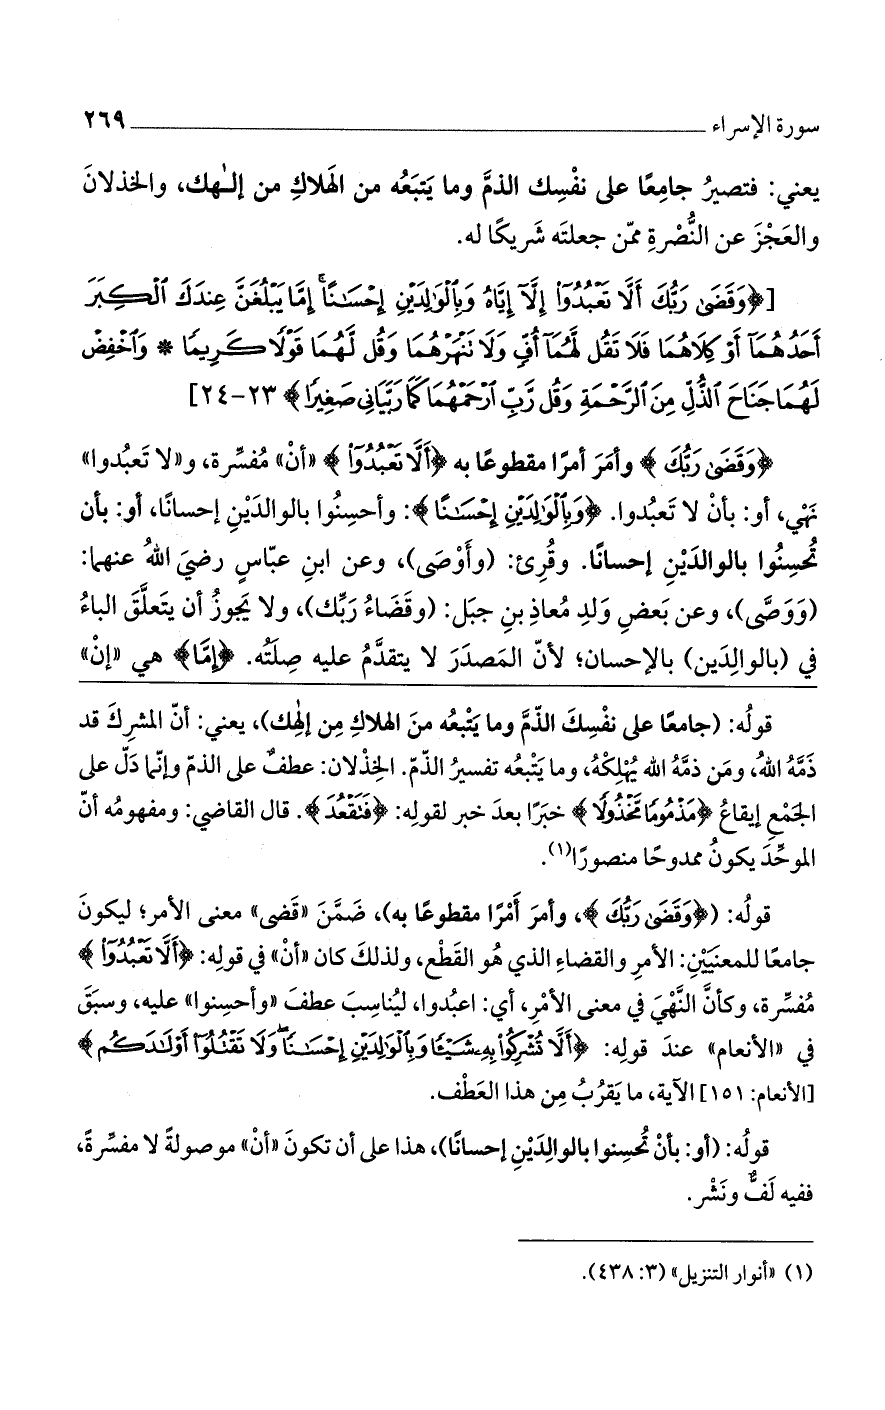 سورة الإسراء ٢٦٩
يعني: فتصيرُ جامِعًا على نفْسِك الذمَّ وما يَتبَعُه من الهَلاكِ من إلـٰهك، والخذلانَ
والعَجْزَ عن النُّصْرةِ ممّن جعلتَه شَريكًا له.
[﴿وَقَضَىٰ رَبُّكَ أَلَّا تَعْبُدُوٓا۟ إِلَّآ إِيَّاهُ وَبِٱلْوَٰلِدَيْنِ إِحْسَـٰنًا ۚ إِمَّا يَبْلُغَنَّ عِندَكَ ٱلْكِبَرَ
أَحَدُهُمَآ أَوْ كِلَاهُمَا فَلَا تَقُل لَّهُمَآ أُفٍّ وَلَا نَنْهَرْهُمَا وَقُل لَّهُمَا قَوْلًا كَرِيمًا * وَٱخْفِضْ
لَهُمَا جَنَاحَ ٱلذُّلِّ مِنَ ٱلرَّحْمَةِ وَقُل رَّبِّ ٱرْحَمْهُمَا كَمَا رَبَّيَانِى صَغِيرًا﴾ ٢٣-٢٤]
﴿وَقَضَىٰ رَبُّكَ﴾ وأمَرَ أمرًا مقطوعًا به ﴿أَلَّا تَعْبُدُوٓا۟﴾ «أنْ» مُفسِّرة، و«لا تَعبُدوا»
نَهْي، أو: بأنْ لا تَعبُدوا. ﴿وَبِٱلْوَٰلِدَيْنِ إِحْسَـٰنًا﴾: وأحسِنُوا بالوالدَيْنِ إحسانًا، أو: بأن
تُحسِنُوا بالوالدَيْنِ إحسانًا. وقُرِئ: (وأَوْصَى)، وعن ابنِ عبّاسٍ رضيَ اللهُ عنهما:
(وَوَصَّى)، وعن بَعضِ وَلدِ مُعاذِ بنِ جبَل: (وقَضَاءُ رَبِّك)، ولا يَجوزُ أن يَتعلَّقَ الباءُ
في (بالوالِدَين) بالإحسان؛ لأنّ المَصدَرَ لا يتقدَّمُ عليه صِلَتُه. ﴿إِمَّا﴾ هي «إنْ»
قولُه: (جامعًا على نفْسِكَ الذّمَّ وما يَتْبعُه منَ الهلاكِ مِن إلٰهِك)، يعني: أنّ المشرِكَ قد
ذَمَّهُ اللهُ، ومَن ذمَّهُ الله يُهْلِكْهُ، وما يَتْبعُه تفسيرُ الذّمّ. الخِذْلان: عطفٌ على الذمّ وإنّما دَلّ على
الجَمْعِ إيقاعُ ﴿مَذْمُومًا مَّخْذُولًا﴾ خبَرًا بعدَ خبر لقولِه: ﴿فَتَقْعُدَ﴾. قال القاضي: ومفهومُه أنّ
الموحِّدَ يكونُ ممدوحًا منصورًا(١).
قولُه: (﴿وَقَضَىٰ رَبُّكَ﴾، وأمرَ أَمْرًا مقطوعًا به)، ضَمَّنَ «قَضى» معنى الأمر؛ ليكونَ
جامعًا للمعنَيَيْنِ: الأمرِ والقضاءِ الذي هُو القَطْع، ولذلكَ كان «أنْ» في قولِه: ﴿أَلَّا تَعْبُدُوٓا۟﴾
مُفسِّرة، وكأنَّ النَّهْيَ في معنى الأمْرِ، أي: اعبُدوا، ليُناسِبَ عطفَ «وأحسِنوا» عليه، وسبَقَ
في «الأنعام» عندَ قولِه: ﴿أَلَّا تُشْرِكُوا۟ بِهِۦ شَيْـًٔا وَبِٱلْوَٰلِدَيْنِ إِحْسَـٰنًا ۖ وَلَا تَقْتُلُوٓا۟ أَوْلَـٰدَكُم﴾
[الأنعام: ١٥١] الآية، ما يَقرُبُ مِن هذا العَطْف.
قولُه: (أو: بأنْ تُحسِنوا بالوالِدَيْنِ إحسانًا)، هذا على أن تكونَ «أنْ» موصولةً لا مفسِّرةً،
ففيه لَفٌّ ونَشْر.
(١) «أنوار التنزيل» (٣: ٤٣٨).